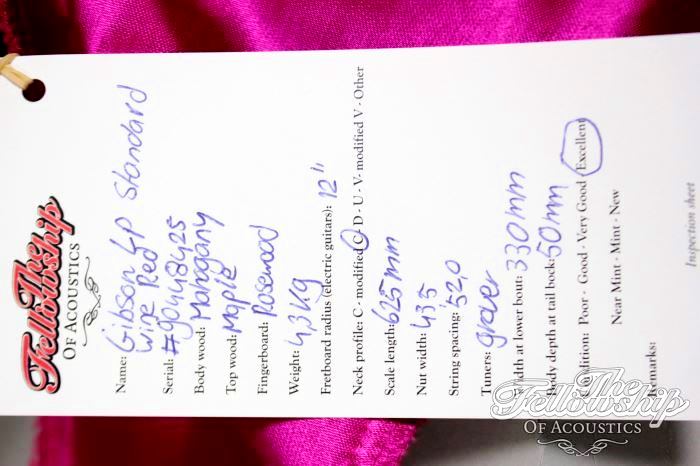 The
Fellowship
OF ACOUSTICS
Name: Gibson LP Standard
Wine Red
Serial: #90448425
Body wood: Mahogany
Top wood: Maple
Fingerboard: Rosewood
Weight: 4,3 Kg
Fretboard radius (electric guitars): 12"
Neck profile: C - modified C - D - U - V - modified V - Other
Scale length: 625mm
Nut width: 43.5
String spacing: 52,0
Tuners: grover
Width at lower bout: 330mm
Body depth at tail bock: 50mm
Condition: Poor - Good - Very Good Excellent
Near Mint - Mint - New
Remarks:
Inspection sheet
The
Fellowship
OF ACOUSTICS